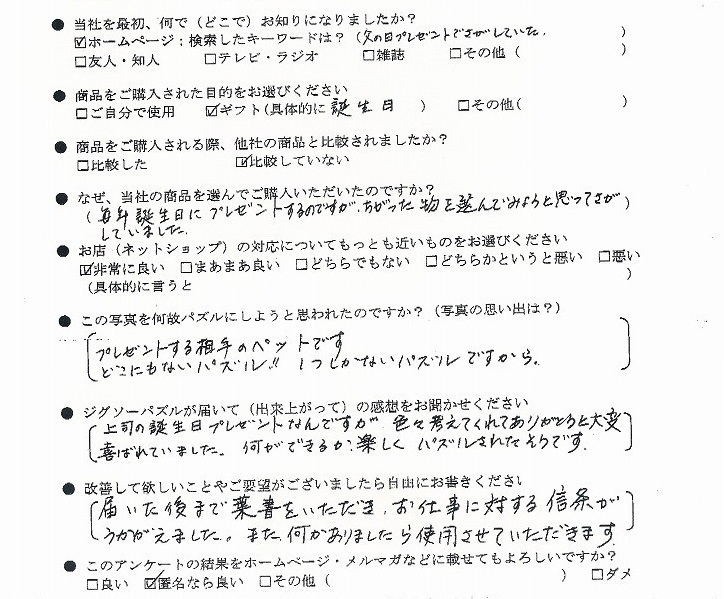 ● 当社を最初、何で（どこで）お知りになりましたか？
☑ホームページ：検索したキーワードは？（父の日プレゼントでさがしていた.　）
□友人・知人　□テレビ・ラジオ　□雑誌　□その他（　）
● 商品をご購入された目的をお選びください
□ご自分で使用　☑ギフト(具体的に 誕生日　）　□その他(　）
● 商品をご購入される際、他社の商品と比較されましたか？
□比較した　☑比較していない
● なぜ、当社の商品を選んでご購入いただいたのですか？
（毎年誕生日にプレゼントするのですが、ちがった物を選んでみようと思ってさが）
していました.
● お店（ネットショップ）の対応についてもっとも近いものをお選びください
☑非常に良い　□まあまあ良い　□どちらでもない　□どちらかというと悪い　□悪い
（具体的に言うと　）
● この写真を何故パズルにしようと思われたのですか？（写真の思い出は？）
プレゼントする相手のペットです
どこにもないパズル!! 1つしかないパズルですから。
● ジグソーパズルが届いて（出来上がって）の感想をお聞かせください
上司の誕生日プレゼントなんですが 色々考えてくれてありがとうと大変
喜ばれていました。何ができるか、楽しく パズルされたそうです.
● 改善して欲しいことやご要望がございましたら自由にお書きください
届いた後まで葉書をいただき、お仕事に対する信条が
うかがえました。また何かありましたら使用させていただきます
● このアンケートの結果をホームページ・メルマガなどに載せてもよろしいですか？
□良い　☑匿名なら良い　□その他（　）　□ダメ